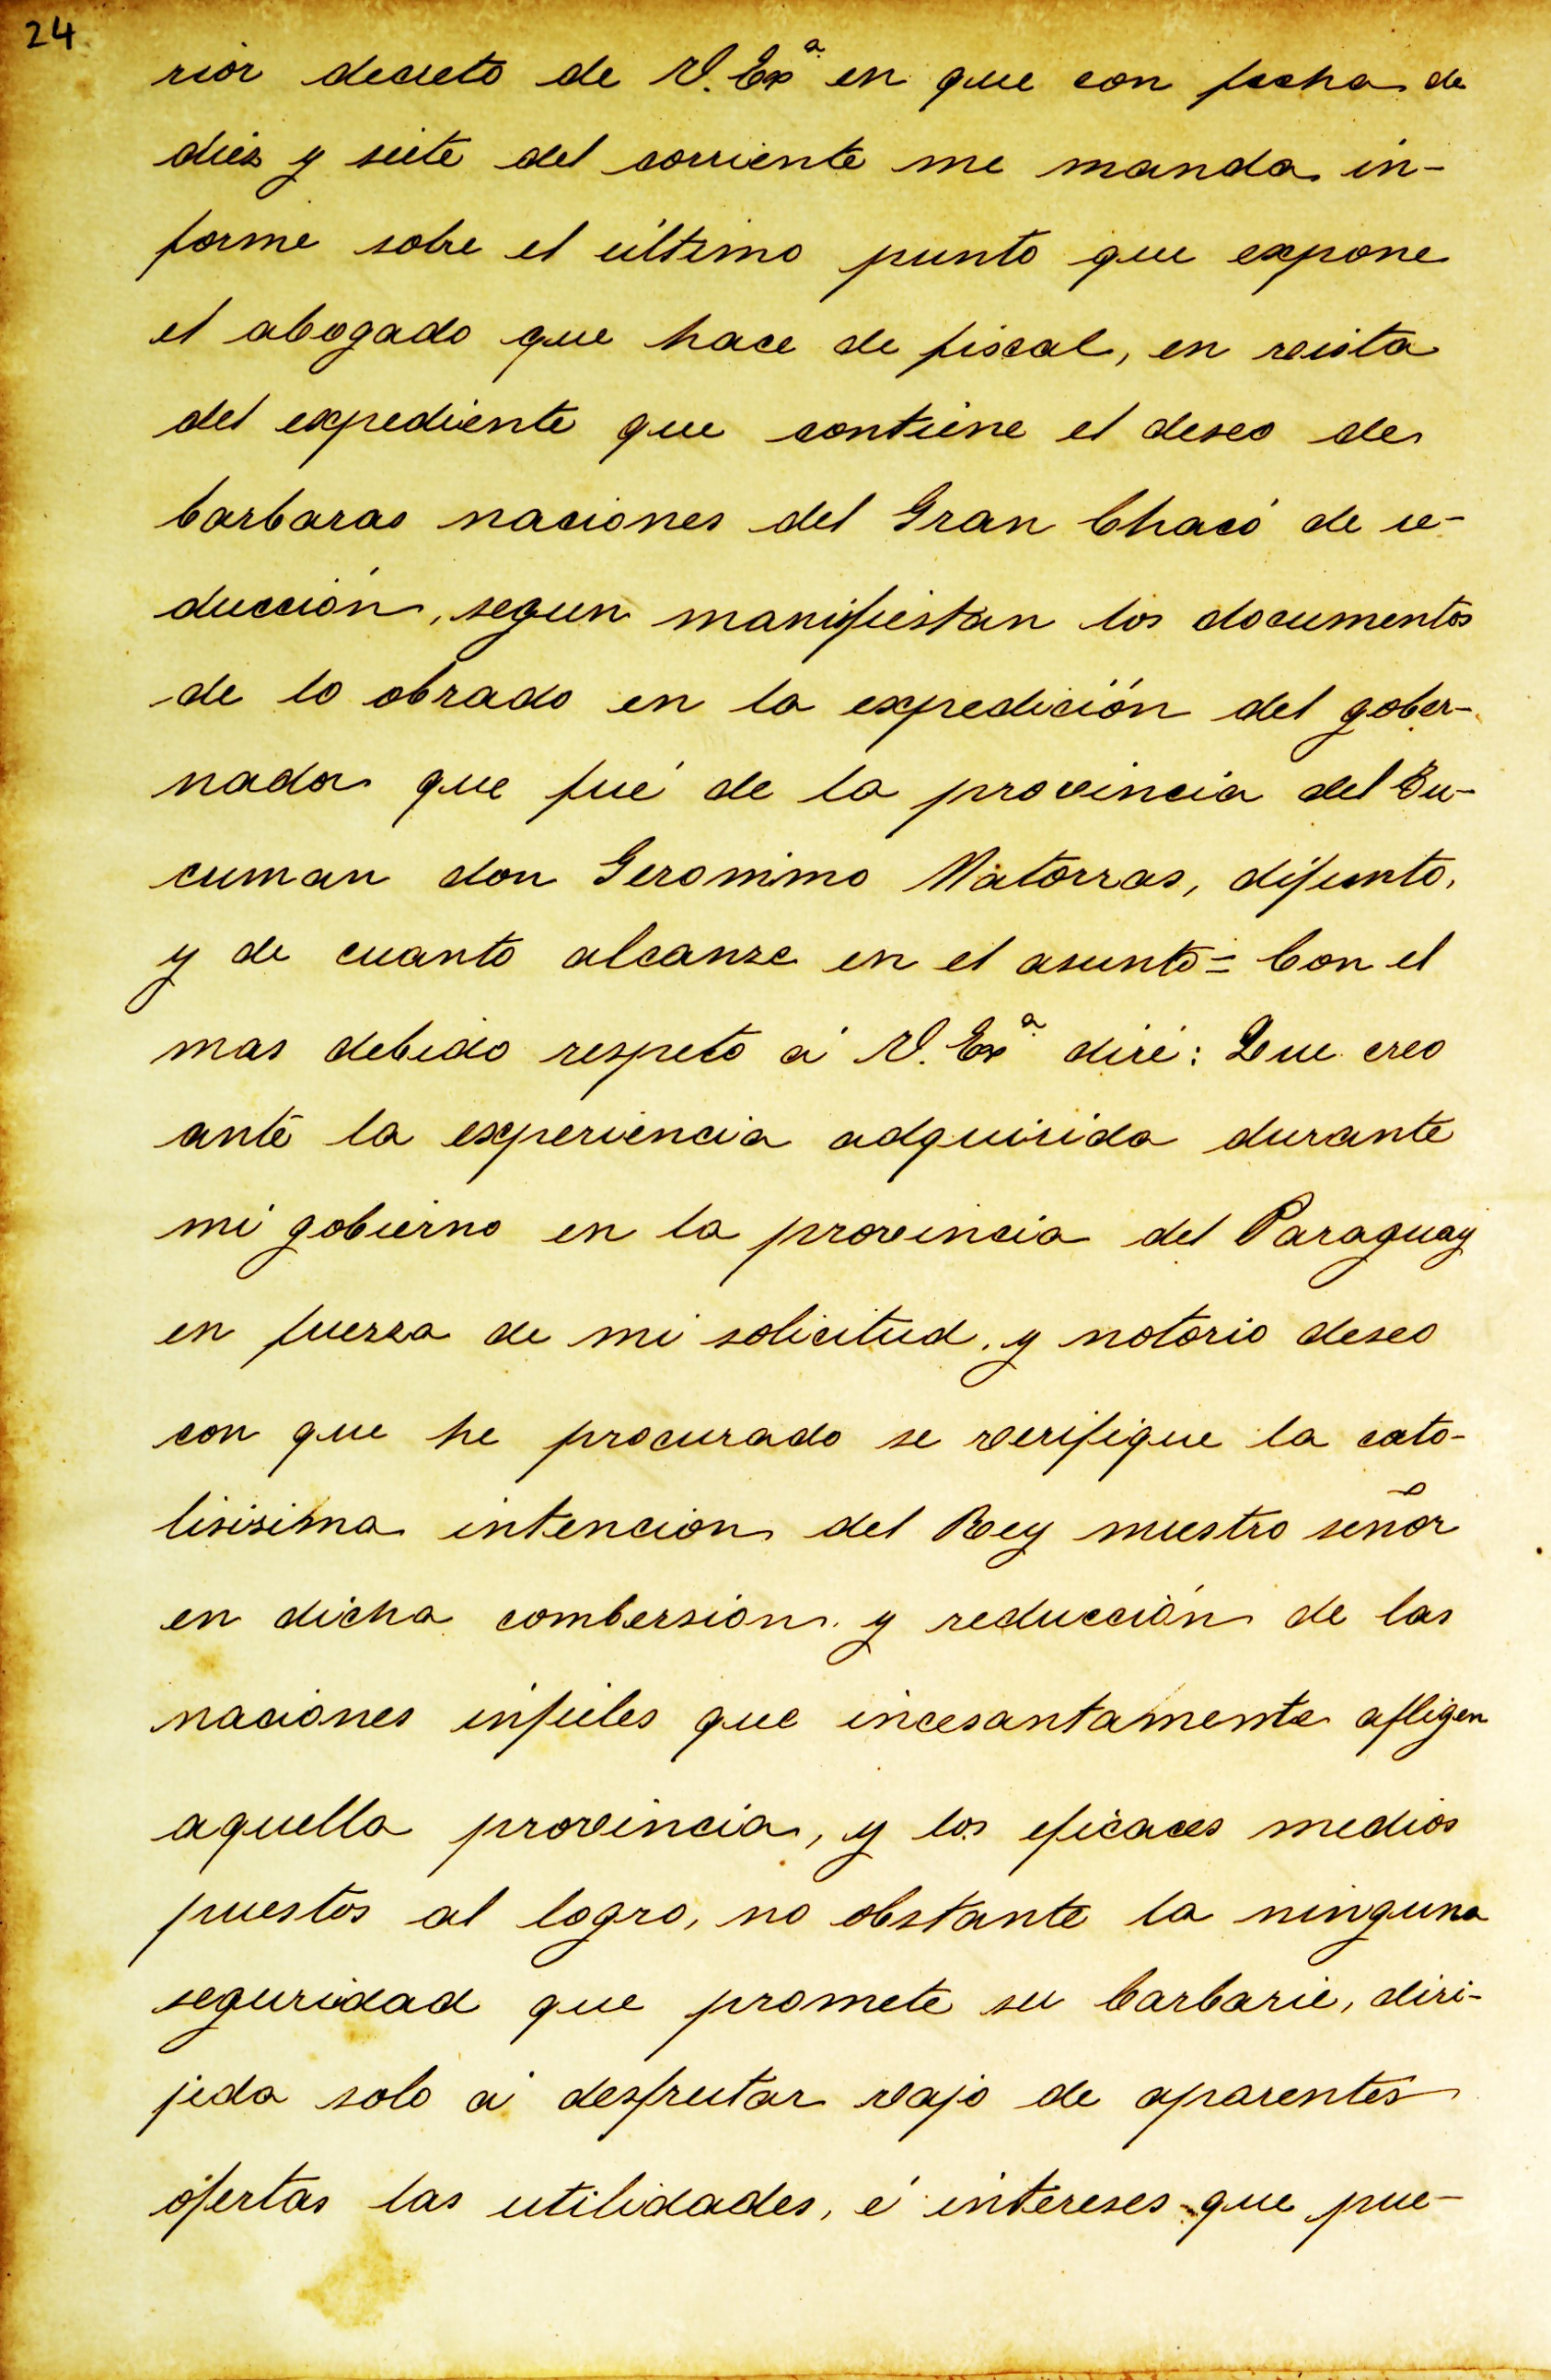 24
rior decreto de V. Exª en que con fecha de
diez y siete del corriente me manda in-
forme sobre el último punto que expone
el abogado que hace de fiscal, en vista
del expediente que contiene el deseo de
barbaras naciones del Gran Chacó de re-
ducción, segun manifiestan los documentos
de lo obrado en la expedición del gober-
nador que fué de la provincia del Tu-
cuman don Geronimo Matorras, difunto,
y de cuanto alcanze en el asunto = Con el
mas debido respeto á V. Exª diré: Que creo
ante la experiencia adquirida durante
mi gobierno en la provincia del Paraguay
en fuerza de mi solicitud, y notorio deseo
con que he procurado se verifique la cato-
lisisima intencion del Rey nuestro señor
en dicha combersion y reducción de las
naciones infieles que incesantamente afligen
aquella provincia, y los eficaces medios
puestos al logro, no obstante la ninguna
seguridad que promete su barbarie, diri-
jida solo á desfrutar vajo de aparentes
ofertas las utilidades, é intereses que pue-